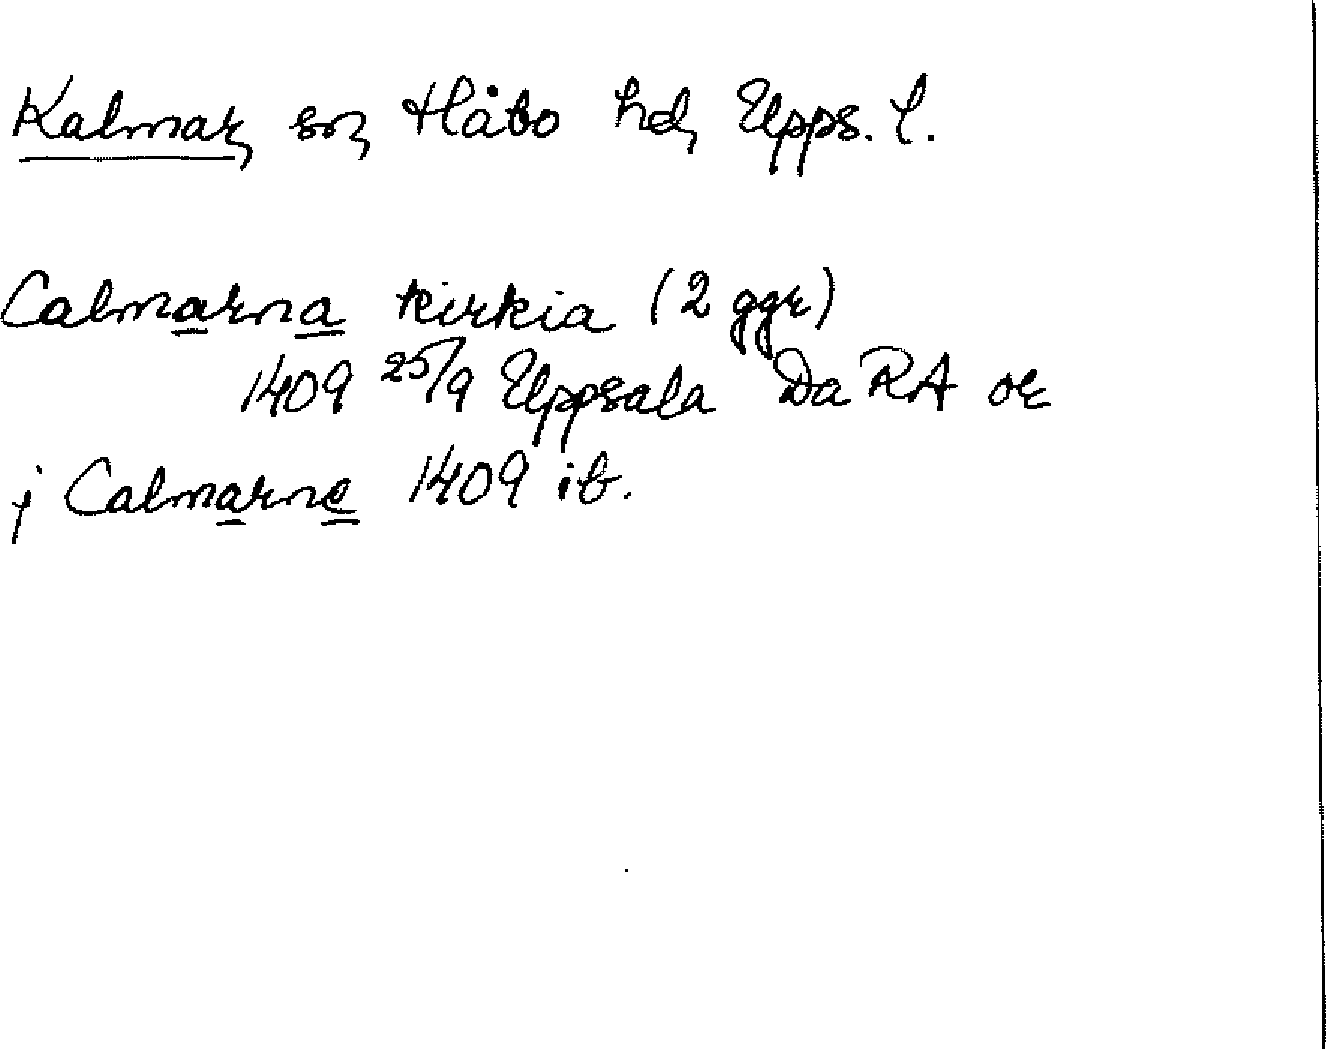 Kalmar, sn, Håbo hd, Upps. l.
Calmarna kirkia (2 ggr)
1409 25/9 Uppsala Da RA or
j Calmarne 1409 ib.